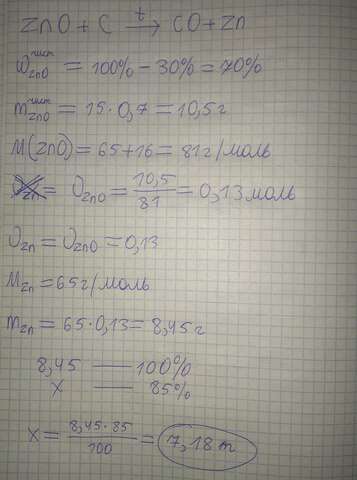 ZnO + C →t CO + Zn
ω чист ZnO = 100% - 30% = 70%
m чист ZnO = 15 · 0,7 = 10,5 г
M(ZnO) = 65 + 16 = 81 г/моль
= υ ZnO = 10,5/81 = 0,13 моль
υ Zn = υ ZnO = 0,13
M Zn = 65 г/моль
m Zn = 65 · 0,13 = 8,45 г
8,45 — 100%
x — 85%
x = 8,45 · 85/100 = 7,18 т